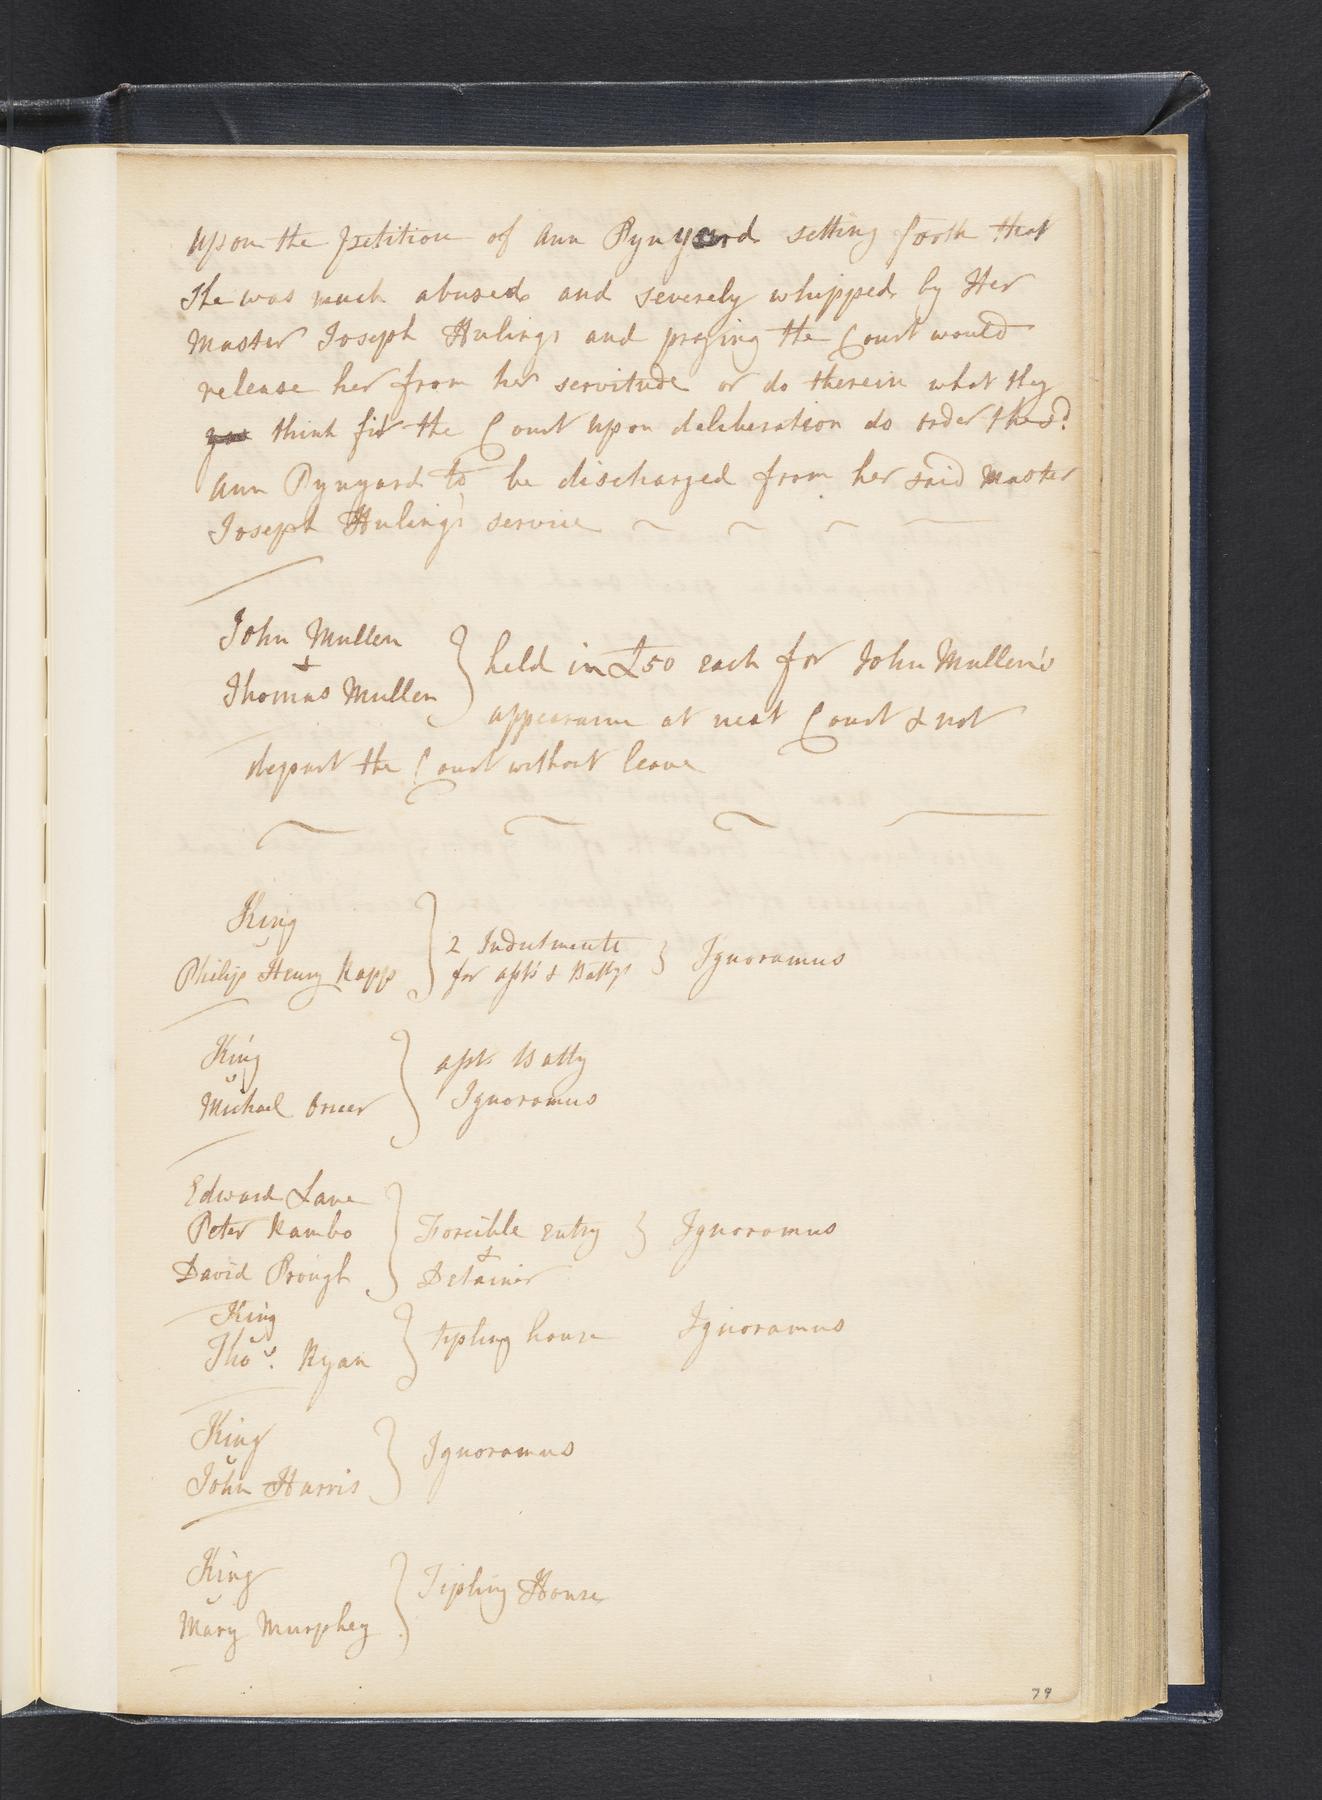 Upon the petition of Ann Pynyard setting forth that
She was much abused and severely whipped by Her
Master Joseph Hulings and praying the Court would
release her from her servitude or do therein what they
think fit the Court Upon deliberation do order the sd.
Ann Pynyard to be discharged from her said Master
Joseph Huling's service
John Mullen
&
Thomas Mullen
held in £50 each for John Mullen's
appearance at next Court & not
depart the Court without leave
King
v
Philip Henry Rapp
2 Indictments
for asst & Battys
Ignoramus
King
v
Michael
asst Batty
Ignoramus
Edward Lane
Peter Rambo
David Brough
Forcible entry
&
Detainer
Ignoramus
King
v
Thos. Ryan
tipling house
Ignoramus
King
v
John Harris
Ignoramus
King
v
Mary Murphey
Tipling House
79